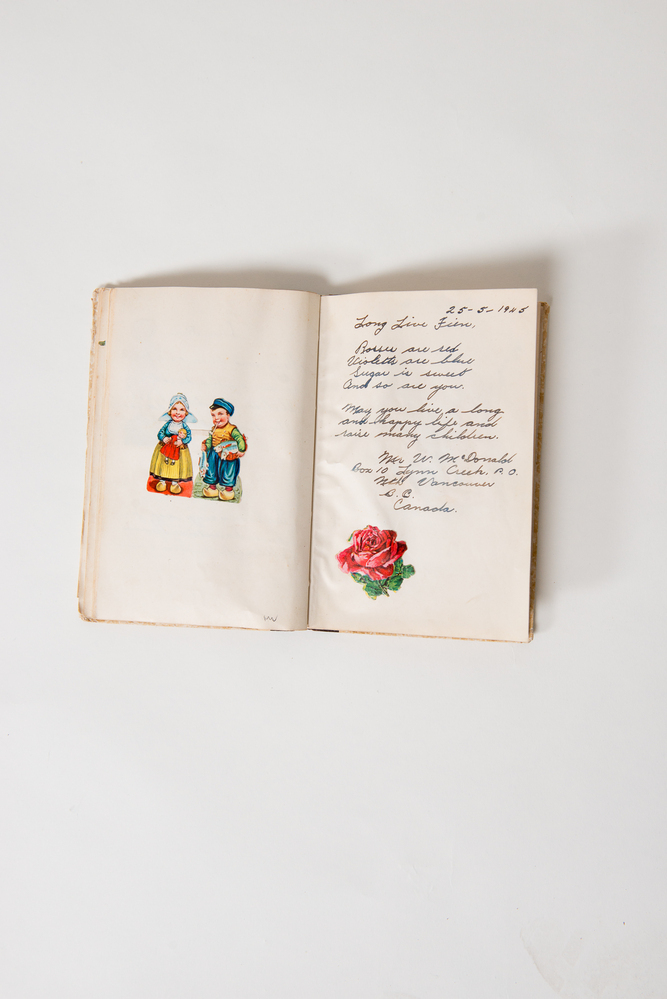 25-5-1945
Long Live Fien,
Rosses are red
Violetts are blue
Sugar is sweet
And so are you.
May you live a long
and happy life and
raise many children.
Mr W. McDonald
Box 10 Lynn Creek. P.O.
Nth Vancouver
B.C.
Canada.